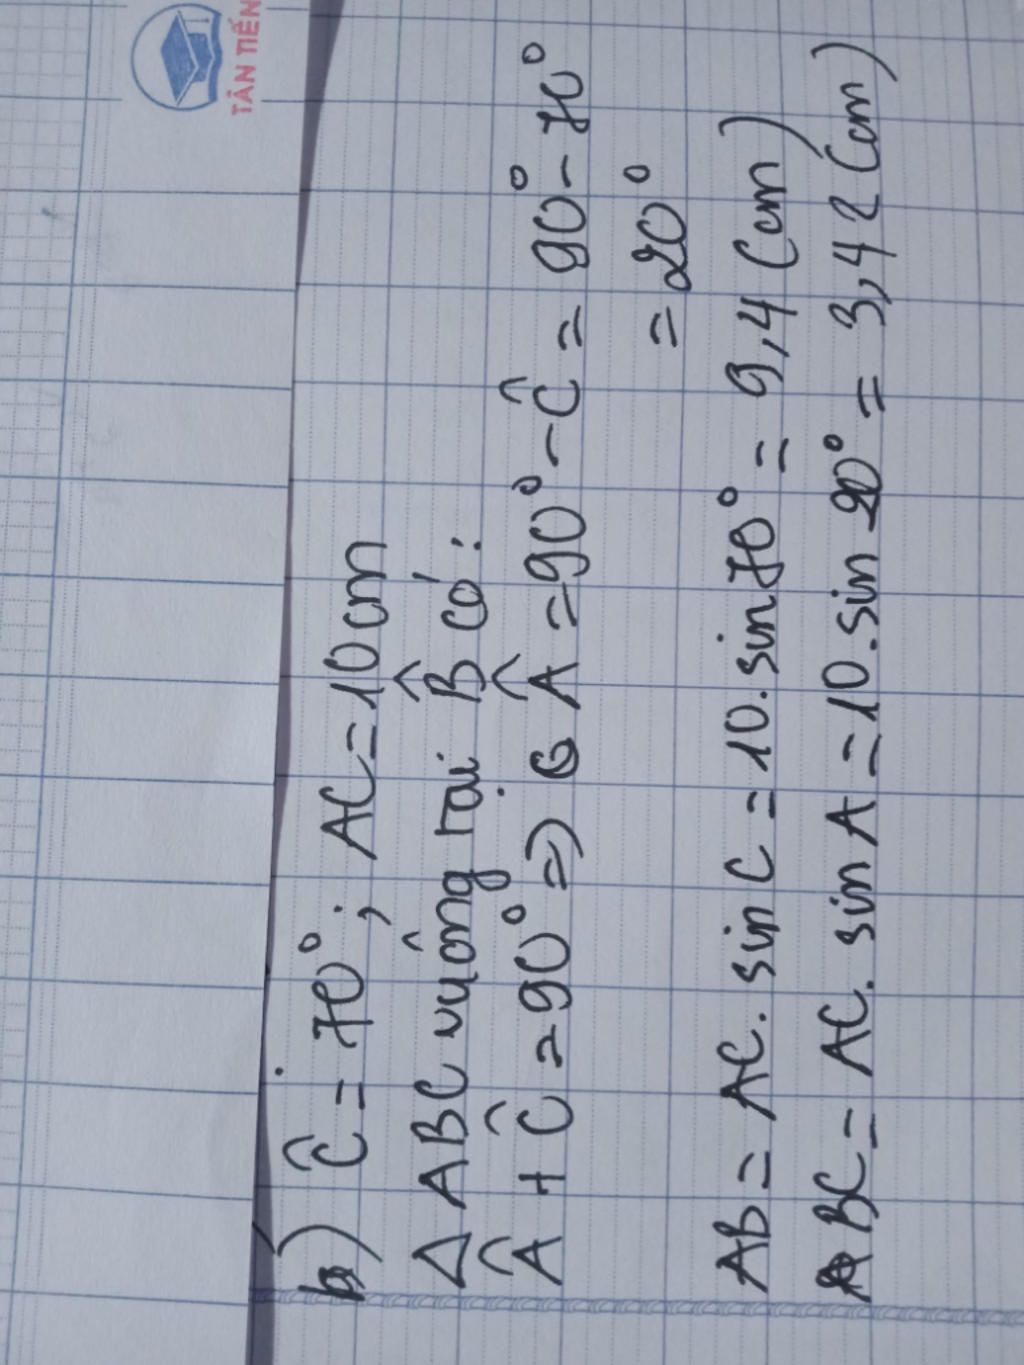 TÂN TIẾN
b) Ĉ = 70°; AC = 10cm
Δ ABC vuông tại B̂ có:
Â + Ĉ = 90° => Â = 90° - Ĉ = 90° - 70°
= 20°
AB = AC. sin C = 10. sin 70° = 9,4 (cm)
BC = AC. sin A = 10. sin 20° = 3,42 (cm)